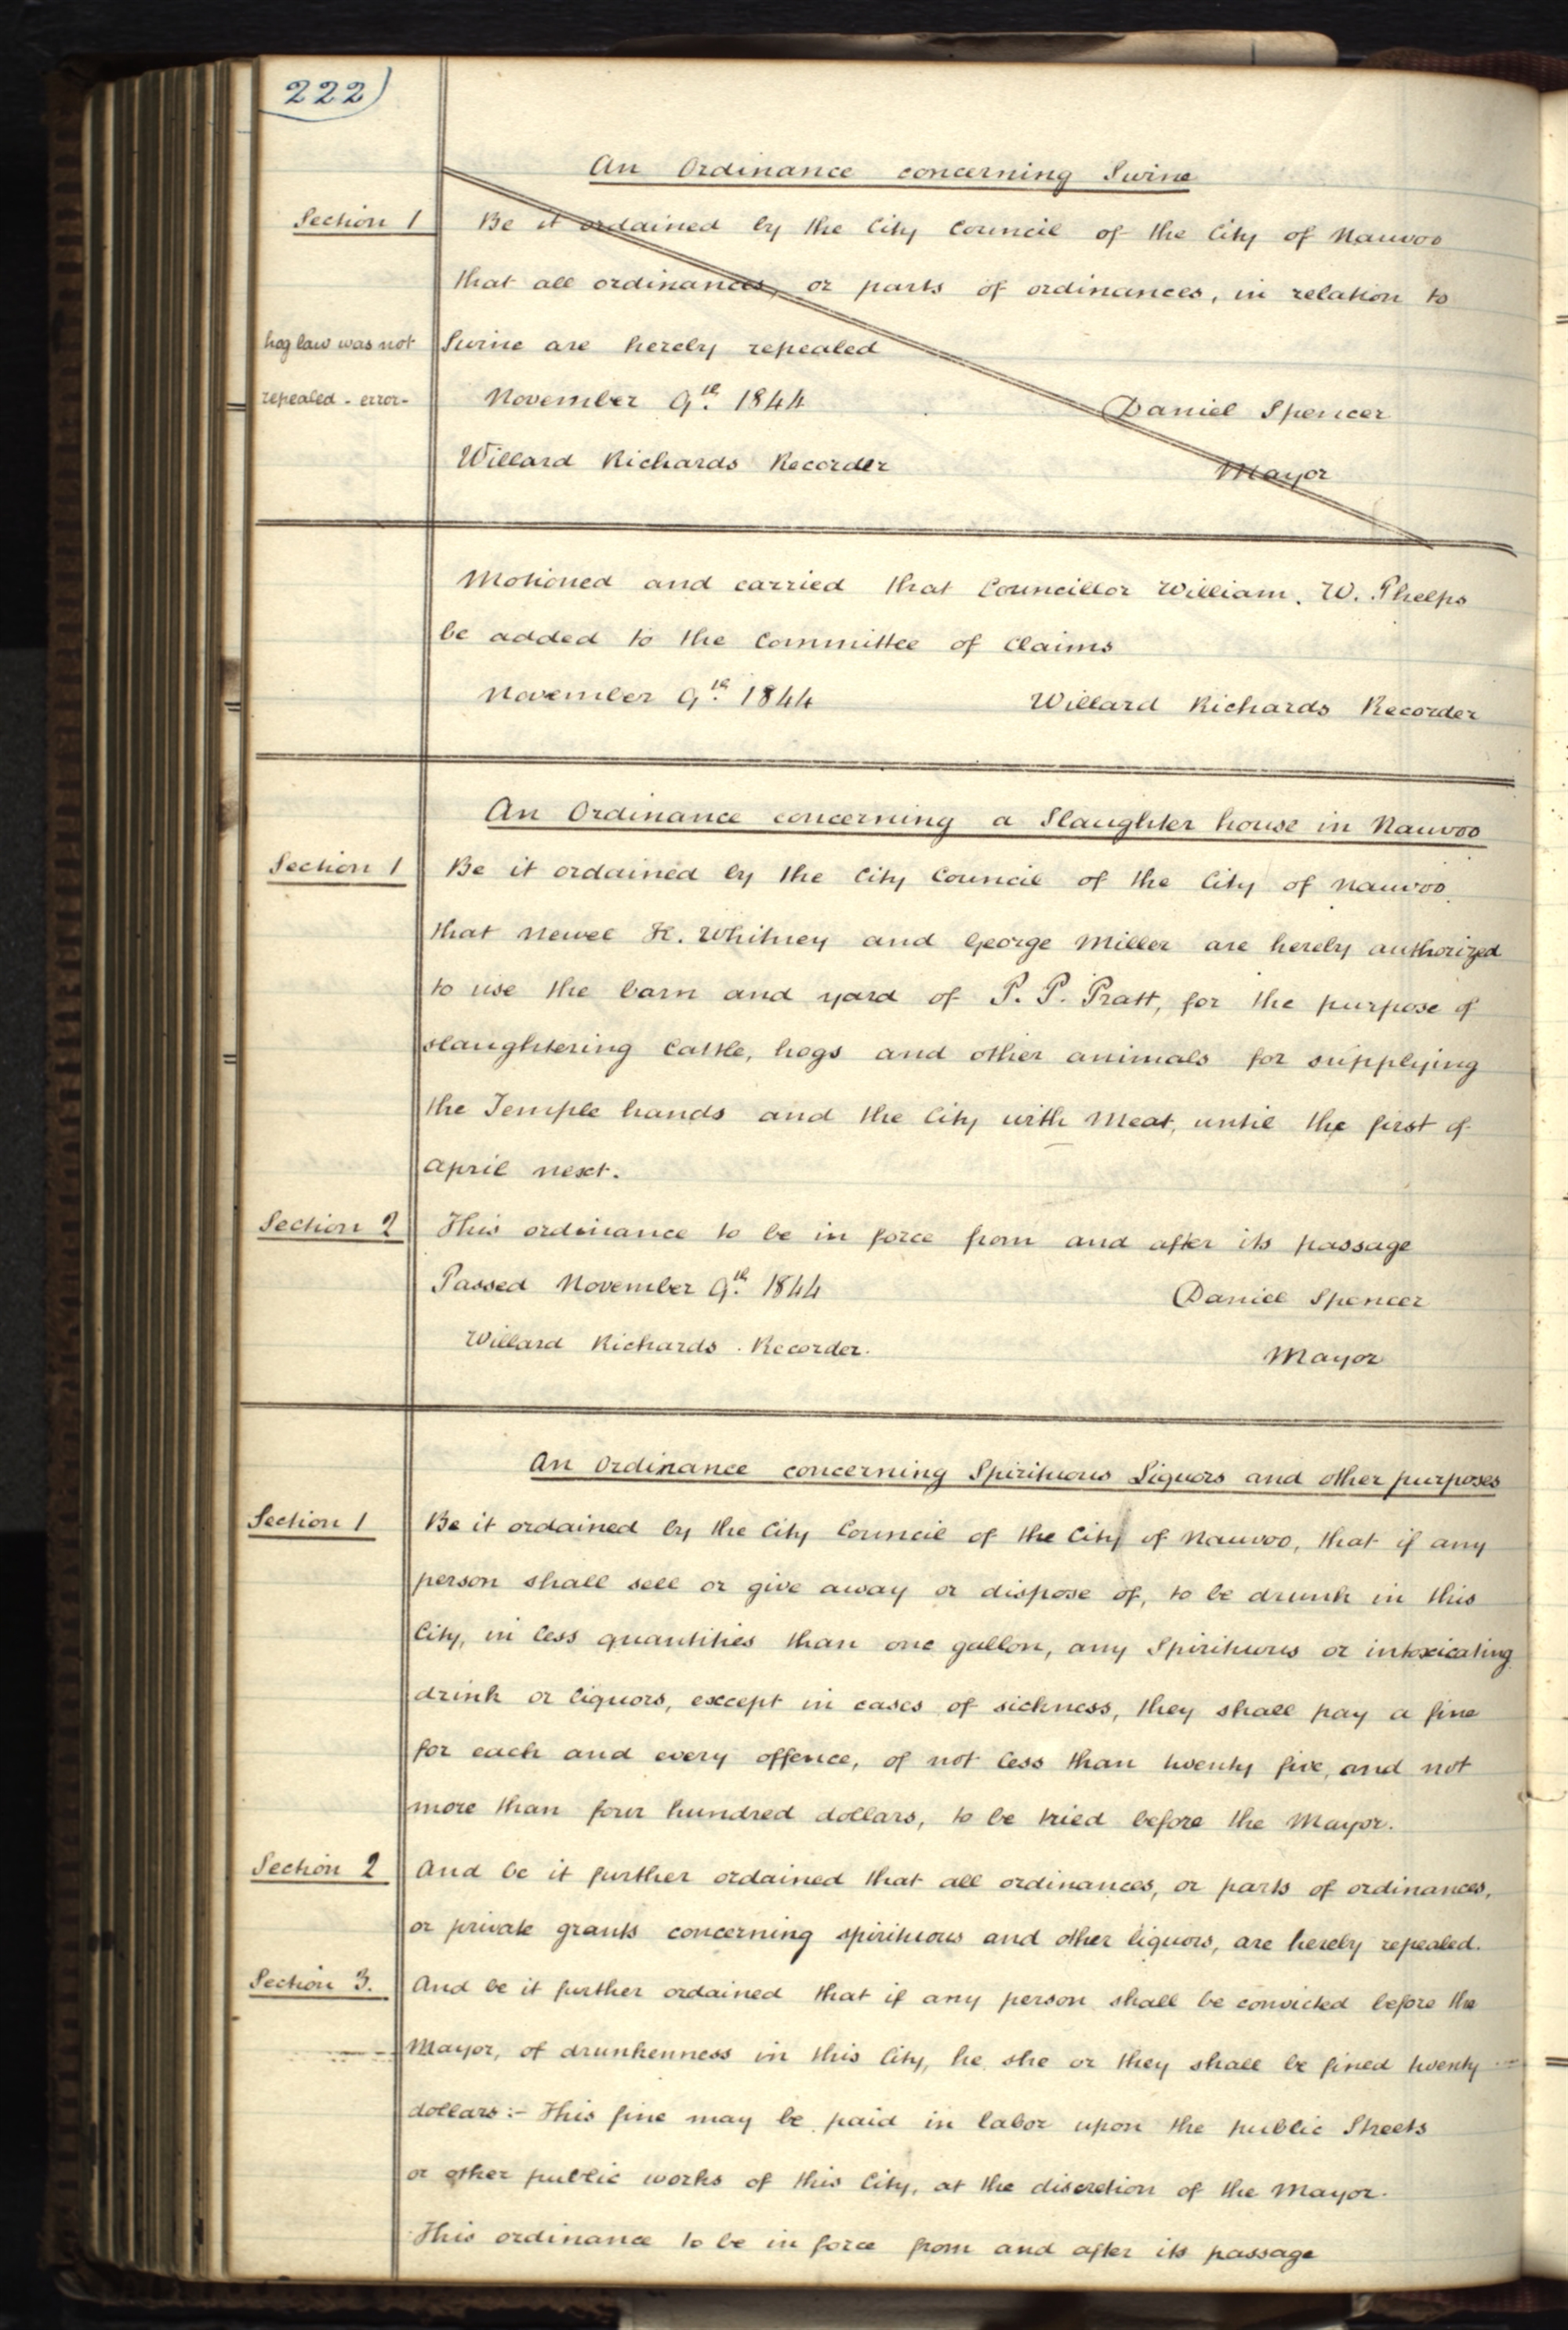 222)
An Ordinance concerning Swine
Section 1 Be it ordained by the City Council of the City of Nauvoo
that all ordinances, or parts of ordinances, in relation to
hog law was not Swine are hereby repealed
repealed - error - November 9th. 1844 Daniel Spencer
Willard Richards Recorder Mayor
Motioned and carried that Councillor William. W. Phelps
be added to the Committee of Claims
November 9th. 1844 Willard Richards Recorder
An Ordinance concerning a Slaughter house in Nauvoo
Section 1 Be it ordained by the City Council of the City of Nauvoo
that Newel K. Whitney and George Miller are hereby authorized
to use the barn and yard of P. P. Pratt, for the purpose of
slaughtering Cattle, hogs and other animals for supplying
the Temple hands and the City with Meat, until the first of
April next.
Section 2 This ordinance to be in force from and after its passage
Passed November 9th. 1844 Daniel Spencer
Willard Richards . Recorder. Mayor
An Ordinance concerning Spirituous Liquors and other purposes
Section 1 Be it ordained by the City Council of the City of Nauvoo, that if any
person shall sell or give away or dispose of, to be drunk in this
City, in less quantities than one gallon, any Spirituous or intoxicating
drink or liquors, except in cases of sickness, they shall pay a fine
for each and every offence, of not less than twenty five, and not
more than four hundred dollars, to be tried before the Mayor.
Section 2 And be it further ordained that all ordinances, or parts of ordinances,
or private grants concerning spirituous and other liquors, are hereby repealed.
Section 3. And be it further ordained that if any person shall be convicted before the
Mayor, of drunkenness in this City, he she or they shall be fined twenty
dollars:- This fine may be paid in labor upon the public Streets
or other public works of this City, at the discretion of the Mayor.
This ordinance to be in force from and after its passage